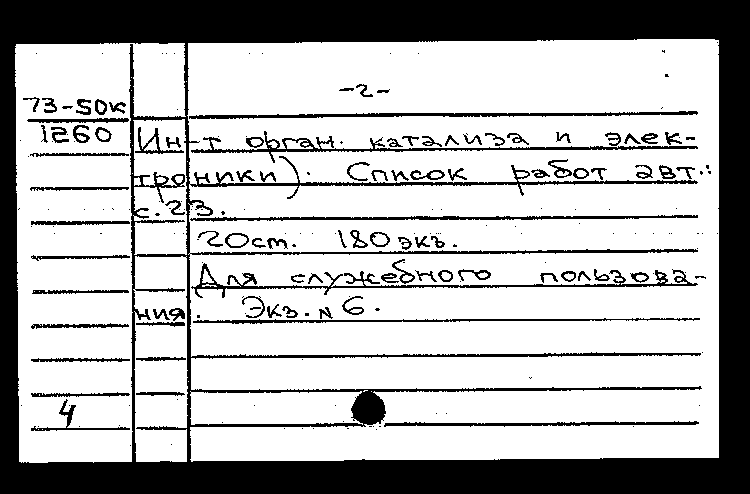 -2-
73-50к
1260 Ин-т орган. катализа и элек-
троники). Список работ авт.:
с. 23.
20см. 180 экз.
Для служебного пользова-
ния. Экз. N 6.
4